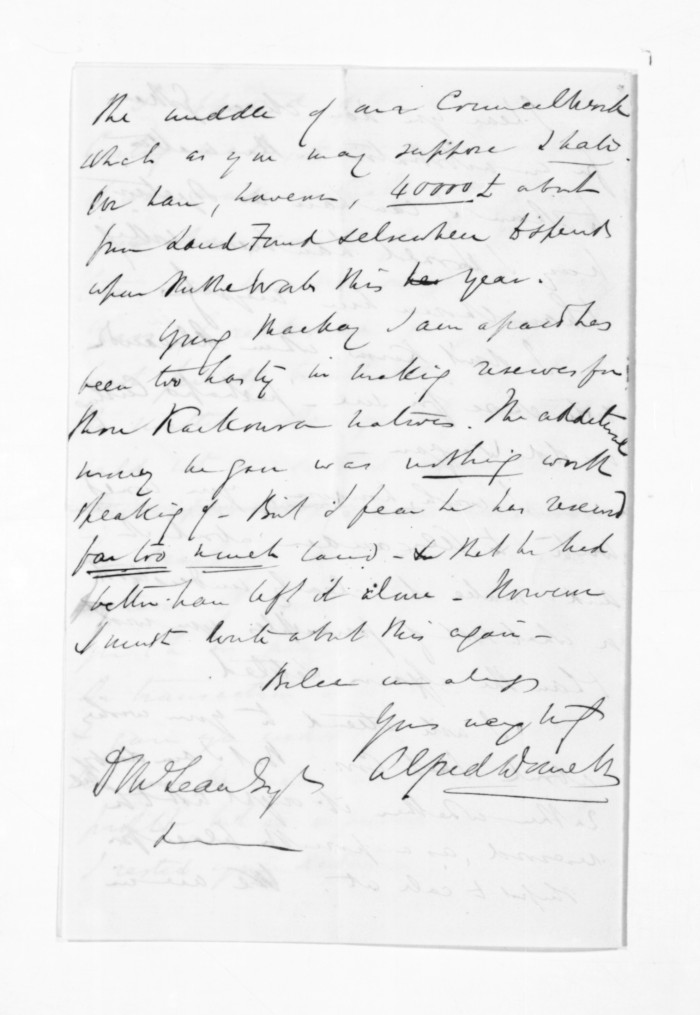 the middle of our Council work
which as you may suppose I hate.
We have, however, 40000£ about
from Land Fund & elsewhere to spend
upon Public Works this year.
Young Mackay I am afraid has
been too hasty in making reserves for
those Kaikoura natives. The additional
money he gave was nothing worth
speaking of - But I fear he has reserved
far too much land - & that he had
better have left it alone - However
I must write about this again -
Believe me always
Yours very truly
Alfred Domett
D McLean Esqre